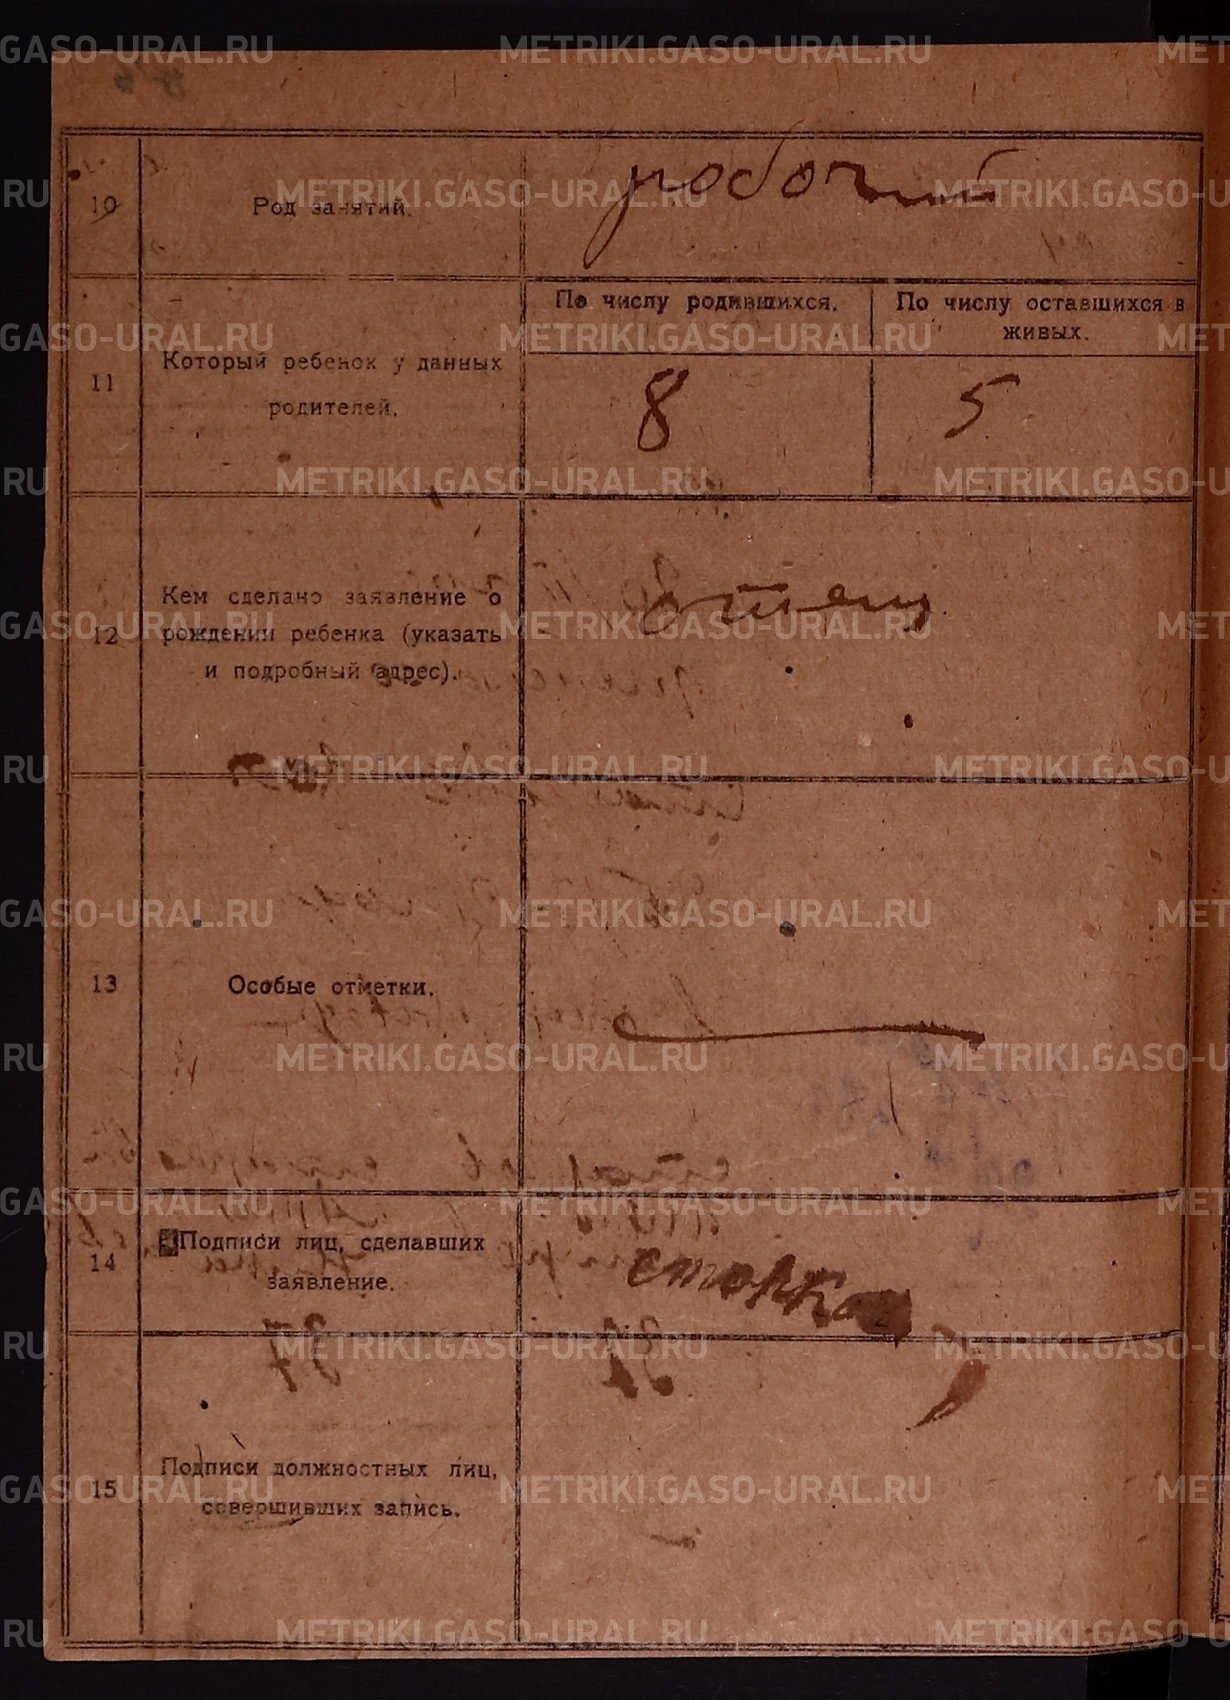 10
Род занятий.
робочий
11
Который ребенок у данных
родителей.
По числу родившихся.
По числу оставшихся в
живых.
8
5
12
Кем сделано заявление о
рождении ребенка (указать
и подробный адрес).
отец
13
Особые отметки.
14
Подписи лиц, сделавших
заявление.
15
Подписи должностных лиц,
совершивших запись.
METRIKI.GASO-URAL.RU